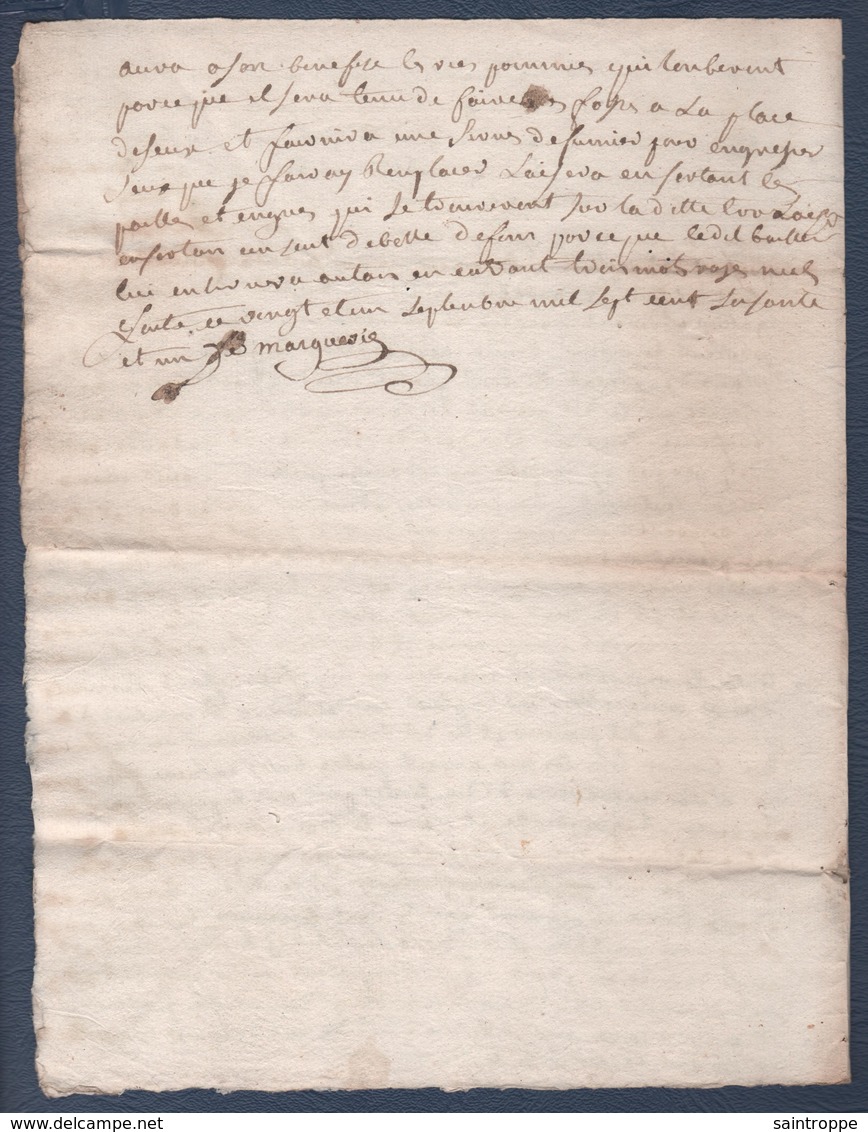 aura a son benefise les vies pommies qui tonberont
parce que il sera tenu de faire les foses a La place
deseux et fournira une somes defumier pour engreser
seux que je faray Remplacer Laisera en sortant les
pailles et engres qui se trouveront sur la ditte
ensortan un sent debotte defoin parce que ledit bailleur
lui en trouvera autan en entrant trois mots rayes nuls
faite ce vingt et un septembre mil sept cent soisante
et un JB marguerie
saintroppe